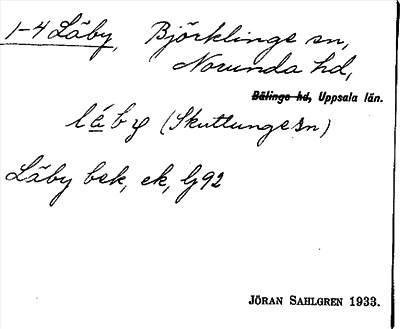 1-4 Läby, Björklinge sn,
Norunda hd,
Bälinge hd, Uppsala län.
läby (Skuttunge sn)
Läby bek, ek, Lg 92
JÖRAN SAHLGREN 1933.